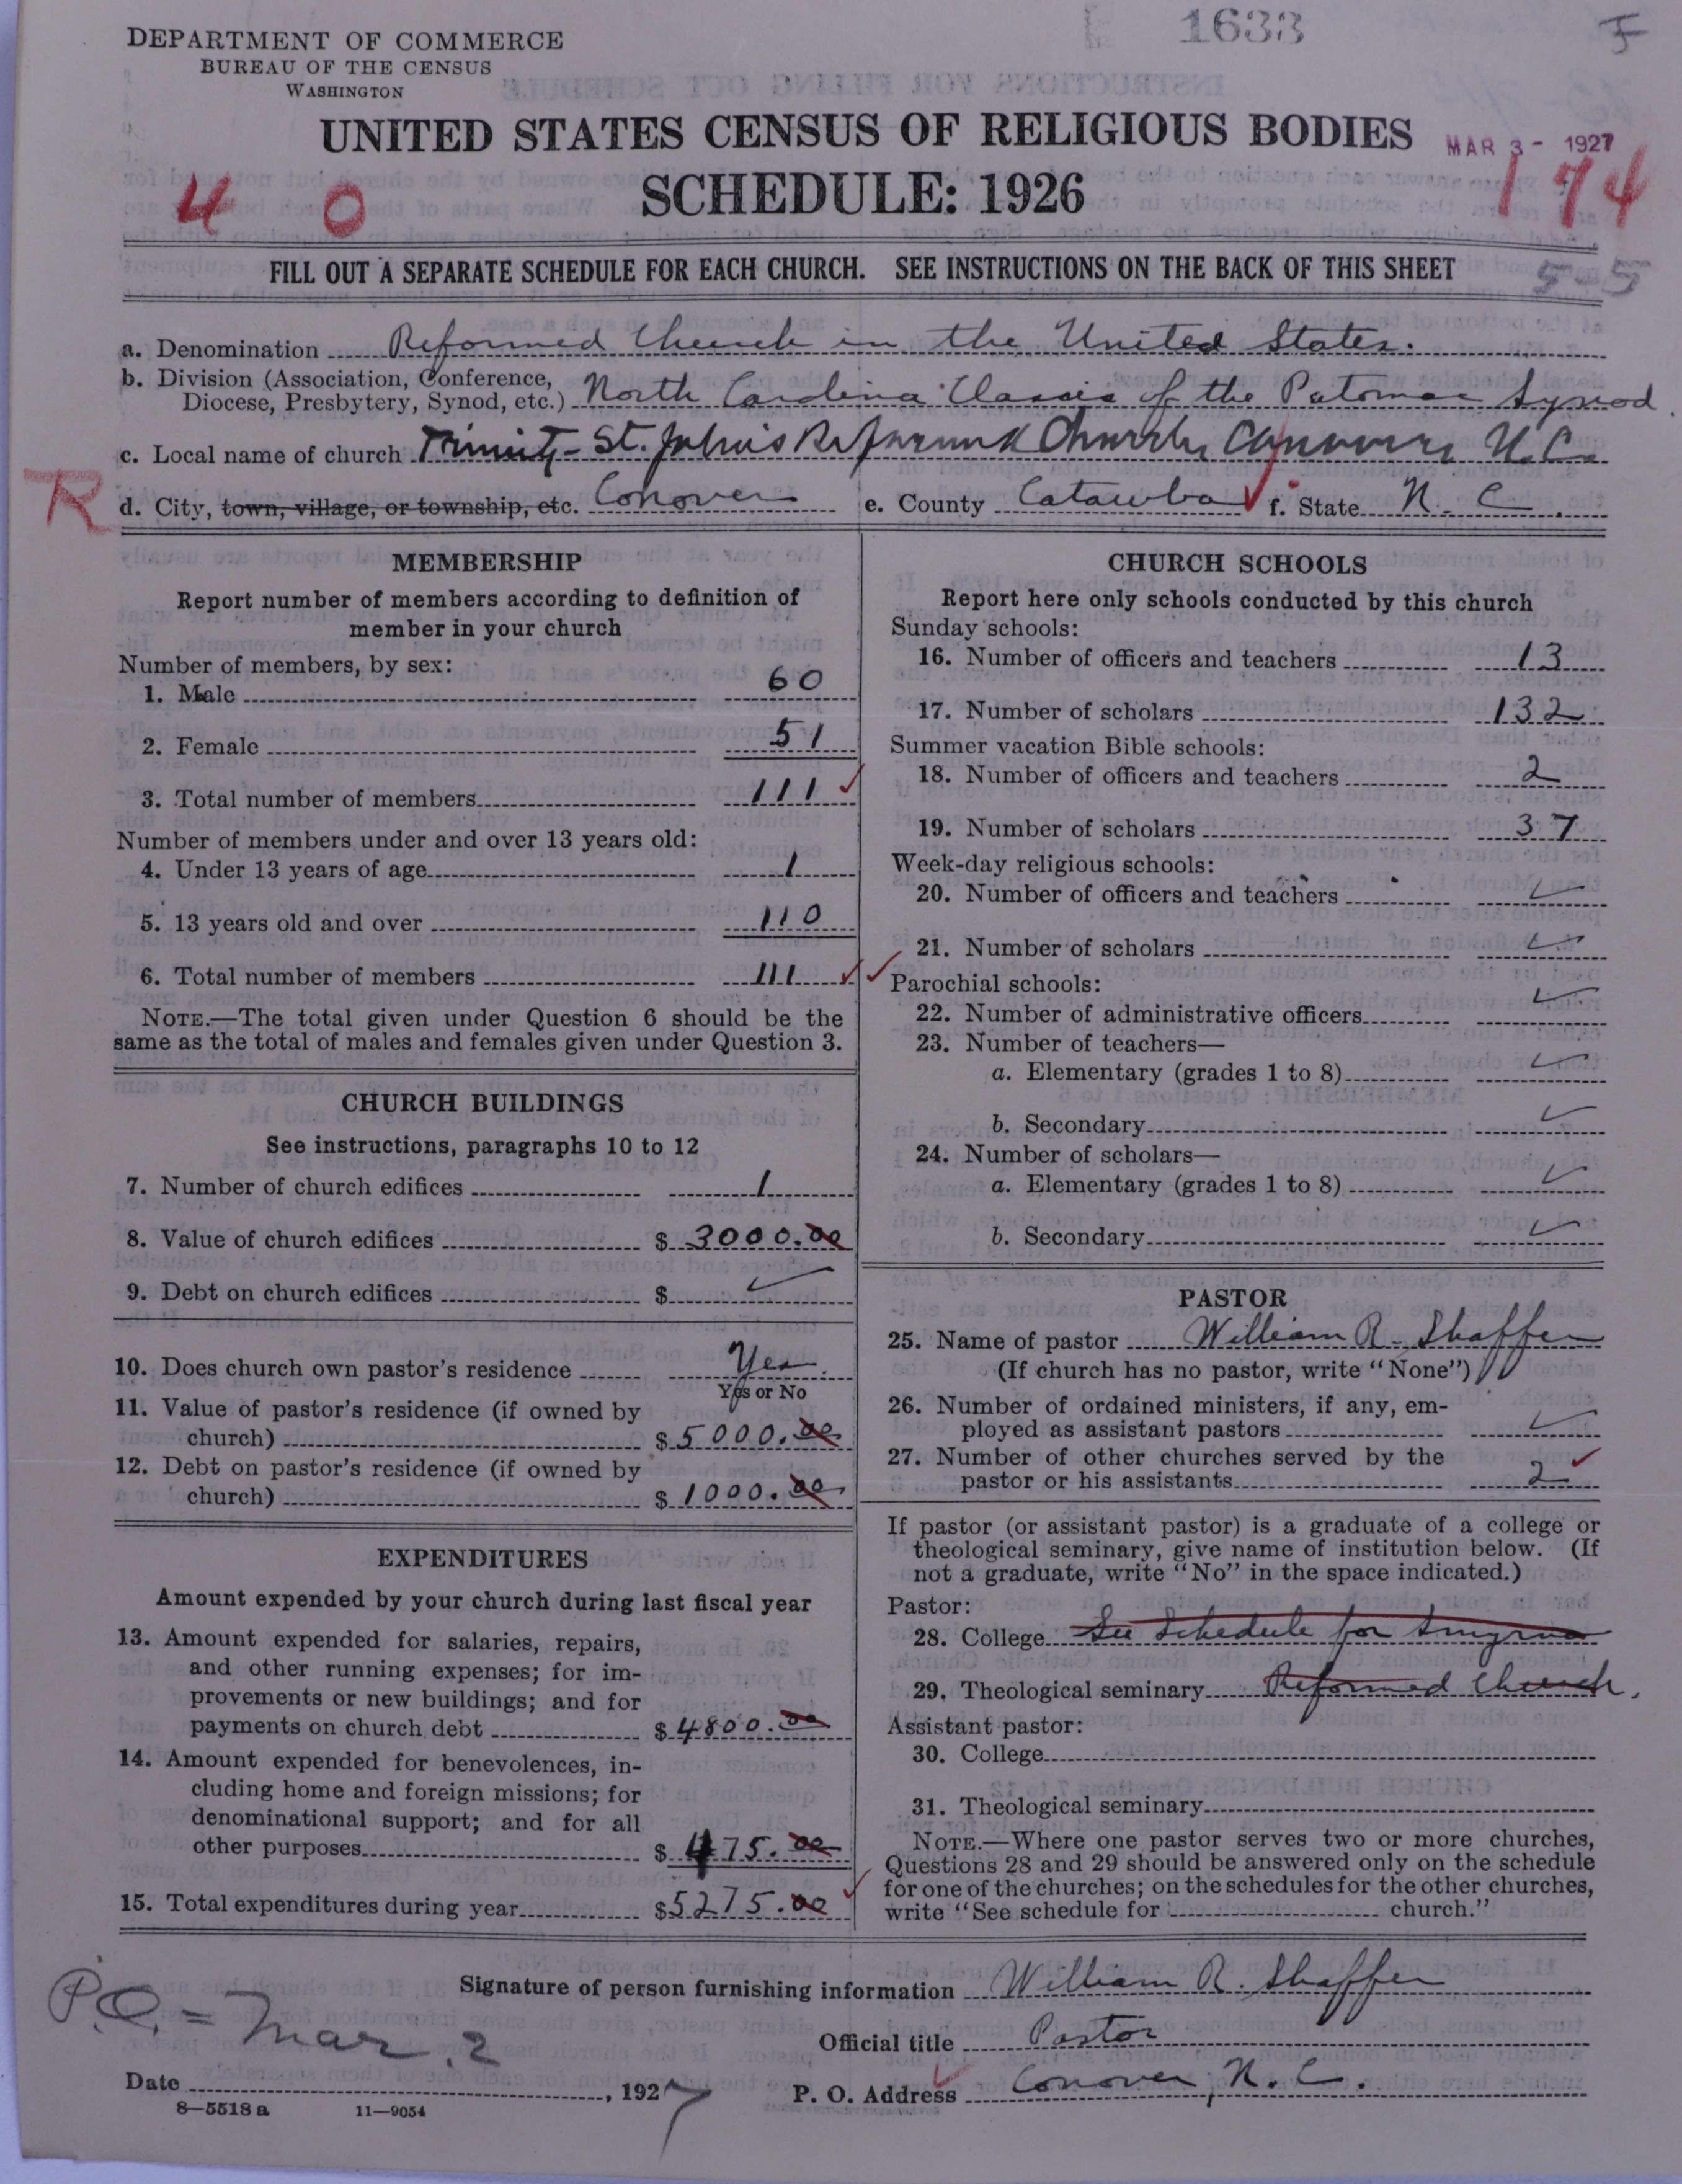 1633
DEPARTMENT OF COMMERCE
BUREAU OF THE CENSUS
WASHINGTON
UNITED STATES CENSUS OF RELIGIOUS BODIES
MAR 3 - 1927
SCHEDULE: 1926
4 0
174
FILL OUT A SEPARATE SCHEDULE FOR EACH CHURCH. SEE INSTRUCTIONS ON THE BACK OF THIS SHEET
5-5
a. Denomination Reformed Church in the United States.
b. Division (Association, Conference,
Diocese, Presbytery, Synod, etc.) North Carolina Classis of the Potomac Synod.
c. Local name of church Trinity - St. John's Reformed Church, Conover, N.C.
R
d. City, town, village, or township, etc. Conover e. County Catawba f. State N. C.
MEMBERSHIP
Report number of members according to definition of
member in your church
Number of members, by sex:
1. Male 60
2. Female 51
3. Total number of members 111 ✓
Number of members under and over 13 years old:
4. Under 13 years of age 1
5. 13 years old and over 110
6. Total number of members 111 ✓
NOTE.—The total given under Question 6 should be the
same as the total of males and females given under Question 3.
CHURCH BUILDINGS
See instructions, paragraphs 10 to 12
7. Number of church edifices 1
8. Value of church edifices $ 3000.00
9. Debt on church edifices $ ✓
10. Does church own pastor's residence Yes.
Yes or No
11. Value of pastor's residence (if owned by
church) $ 5000.00
12. Debt on pastor's residence (if owned by
church) $ 1000.00
EXPENDITURES
Amount expended by your church during last fiscal year
13. Amount expended for salaries, repairs,
and other running expenses; for im-
provements or new buildings; and for
payments on church debt $ 4800.00
14. Amount expended for benevolences, in-
cluding home and foreign missions; for
denominational support; and for all
other purposes $ 475.00
15. Total expenditures during year $5275.00 ✓
CHURCH SCHOOLS
Report here only schools conducted by this church
Sunday schools:
16. Number of officers and teachers 13
17. Number of scholars 132
Summer vacation Bible schools:
18. Number of officers and teachers 2
19. Number of scholars 37
Week-day religious schools:
20. Number of officers and teachers ✓
21. Number of scholars ✓
✓ Parochial schools:
22. Number of administrative officers ✓
23. Number of teachers—
a. Elementary (grades 1 to 8) ✓
b. Secondary ✓
24. Number of scholars—
a. Elementary (grades 1 to 8) ✓
b. Secondary ✓
PASTOR
25. Name of pastor William R. Shaffer
(If church has no pastor, write "None")
26. Number of ordained ministers, if any, em-
ployed as assistant pastors ✓
27. Number of other churches served by the
pastor or his assistants 2 ✓
If pastor (or assistant pastor) is a graduate of a college or
theological seminary, give name of institution below. (If
not a graduate, write "No" in the space indicated.)
Pastor:
28. College See Schedule for Smyrna
29. Theological seminary Reformed Church.
Assistant pastor:
30. College
31. Theological seminary
NOTE.—Where one pastor serves two or more churches,
Questions 28 and 29 should be answered only on the schedule
for one of the churches; on the schedules for the other churches,
write "See schedule for church."
Signature of person furnishing information William R. Shaffer
Official title Pastor
P.O. = Mar. 2
Date , 1927
P. O. Address Conover, N. C.
8—5518 a 11—9054